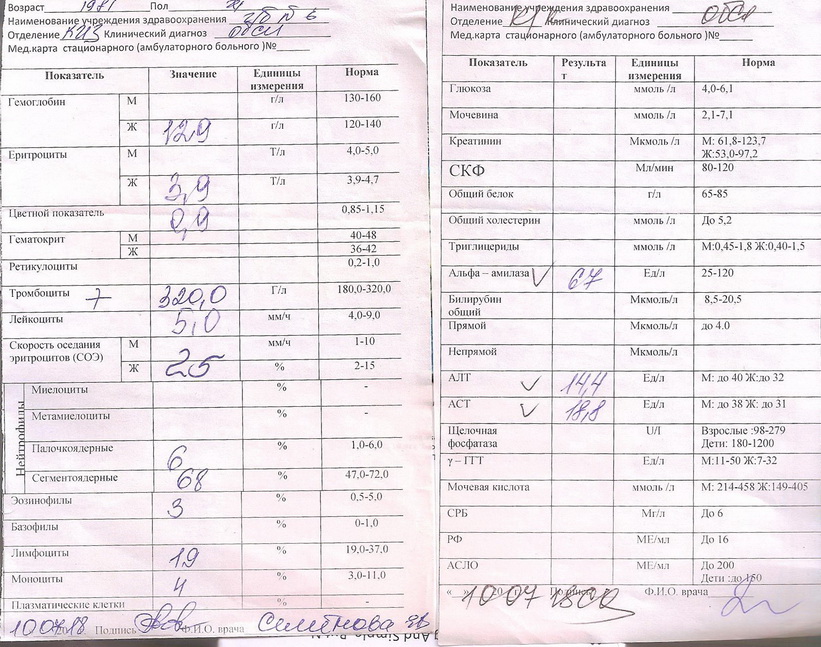 Возраст 1981 Пол
Наименование учреждения здравоохранения
Отделение КИЗ Клинический диагноз обсл
Мед.карта стационарного (амбулаторного больного )№
Показатель Значение Единицы измерения Норма
Гемоглобин М г/л 130-160
Ж 129 г/л 120-140
Еритроциты М Т/л 4,0-5,0
Ж 3,9 Т/л 3,9-4,7
Цветной показатель 0,9 0,85-1,15
Гематокрит М 40-48
Ж 36-42
Ретикулоциты 0,2-1,0
Тромбоциты 320,0 Г/л 180,0-320,0
Лейкоциты 5,0 мм/ч 4,0-9,0
Скорость оседания эритроцитов (СОЭ) М мм/ч 1-10
Ж 25 % 2-15
Нейтрофилы
Миелоциты % -
Метамиелоциты % -
Палочкоядерные 6 % 1,0-6,0
Сегментоядерные 68 % 47,0-72,0
Эозинофилы 3 % 0,5-5,0
Базофилы % 0-1,0
Лимфоциты 19 % 19,0-37,0
Моноциты 4 % 3,0-11,0
Плазматические клетки % -
10 07 18 Подпись Ф.И.О. врача
Наименование учреждения здравоохранения
Отделение Клинический диагноз обсл
Мед.карта стационарного (амбулаторного больного )№
Показатель Результат Единицы измерения Норма
Глюкоза ммоль /л 4,0-6,1
Мочевина ммоль /л 2,1-7,1
Креатинин Мкмоль /л М: 61,8-123,7
Ж:53,0-97,2
СКФ Мл/мин 80-120
Общий белок г/л 65-85
Общий холестерин ммоль /л До 5,2
Триглицериды ммоль /л М:0,45-1,8 Ж:0,40-1,5
Альфа – амилаза 67 Ед/л 25-120
Билирубин общий Мкмоль/л 8,5-20,5
Прямой Мкмоль/л до 4.0
Непрямой Мкмоль/л
АЛТ 14,4 Ед/л М: до 40 Ж:до 32
АСТ 18,8 Ед/л М: до 38 Ж: до 31
Щелочная фосфатаза U/l Взрослые :98-279
Дети: 180-1200
γ – ГГТ Ед/л М:11-50 Ж:7-32
Мочевая кислота ммоль /л М: 214-458 Ж:149-405
СРБ Мг/л До 6
РФ МЕ/мл До 16
АСЛО МЕ/мл До 200
Дети :до 150
10 07 18 Ф.И.О. врача